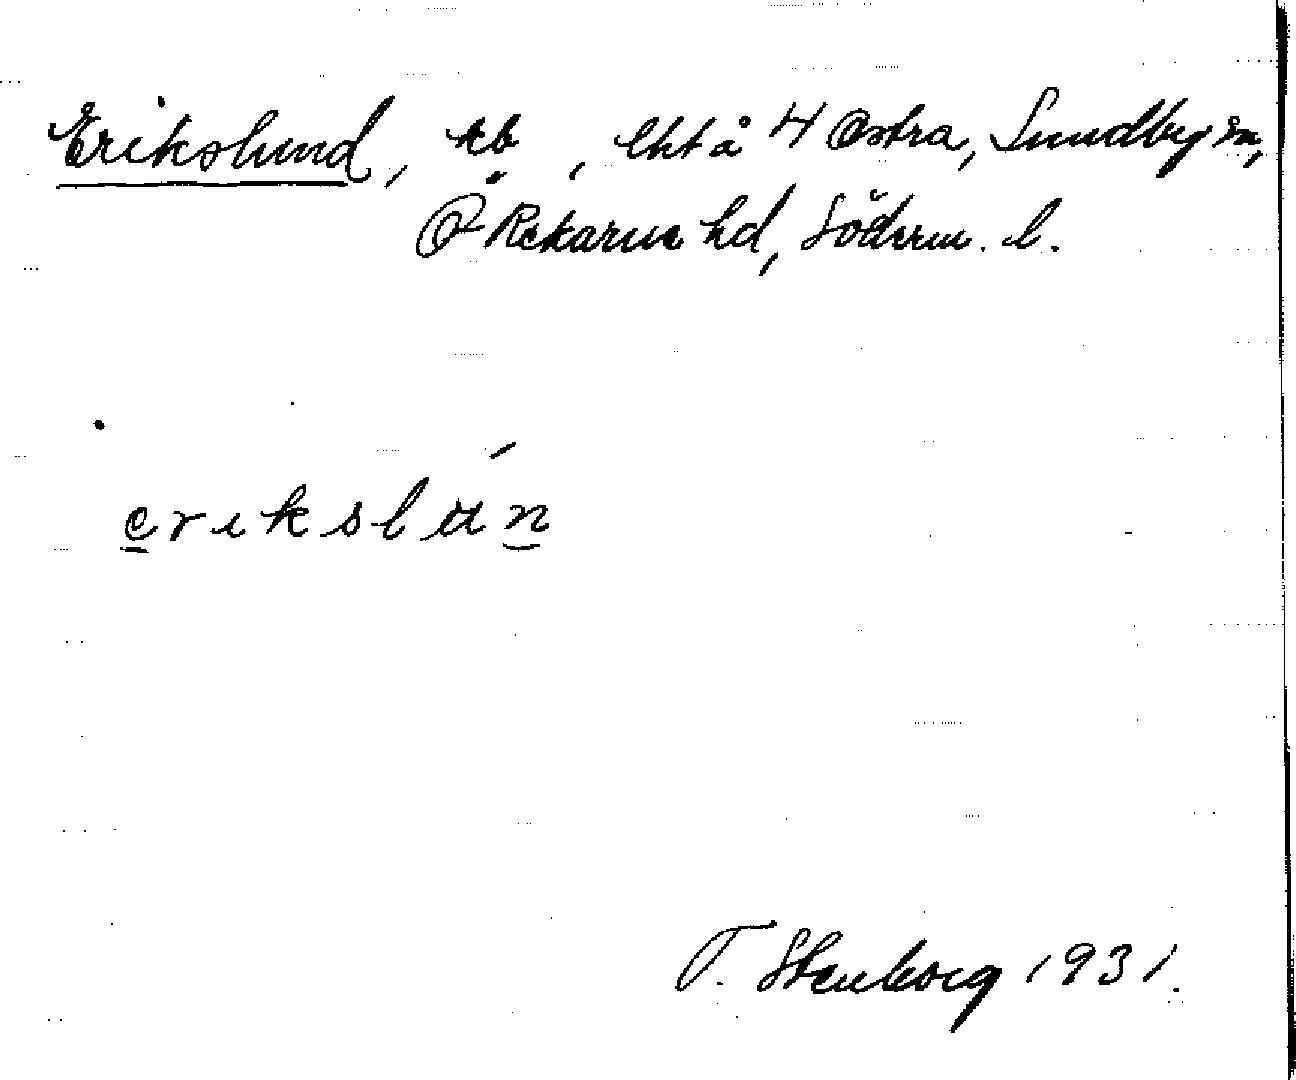 Erikslund, tb, lht å 4 Östra, Sundby sn,
Ö Rekarne hd, Söderm. l.
erikslun
T. Stenborg 1931.